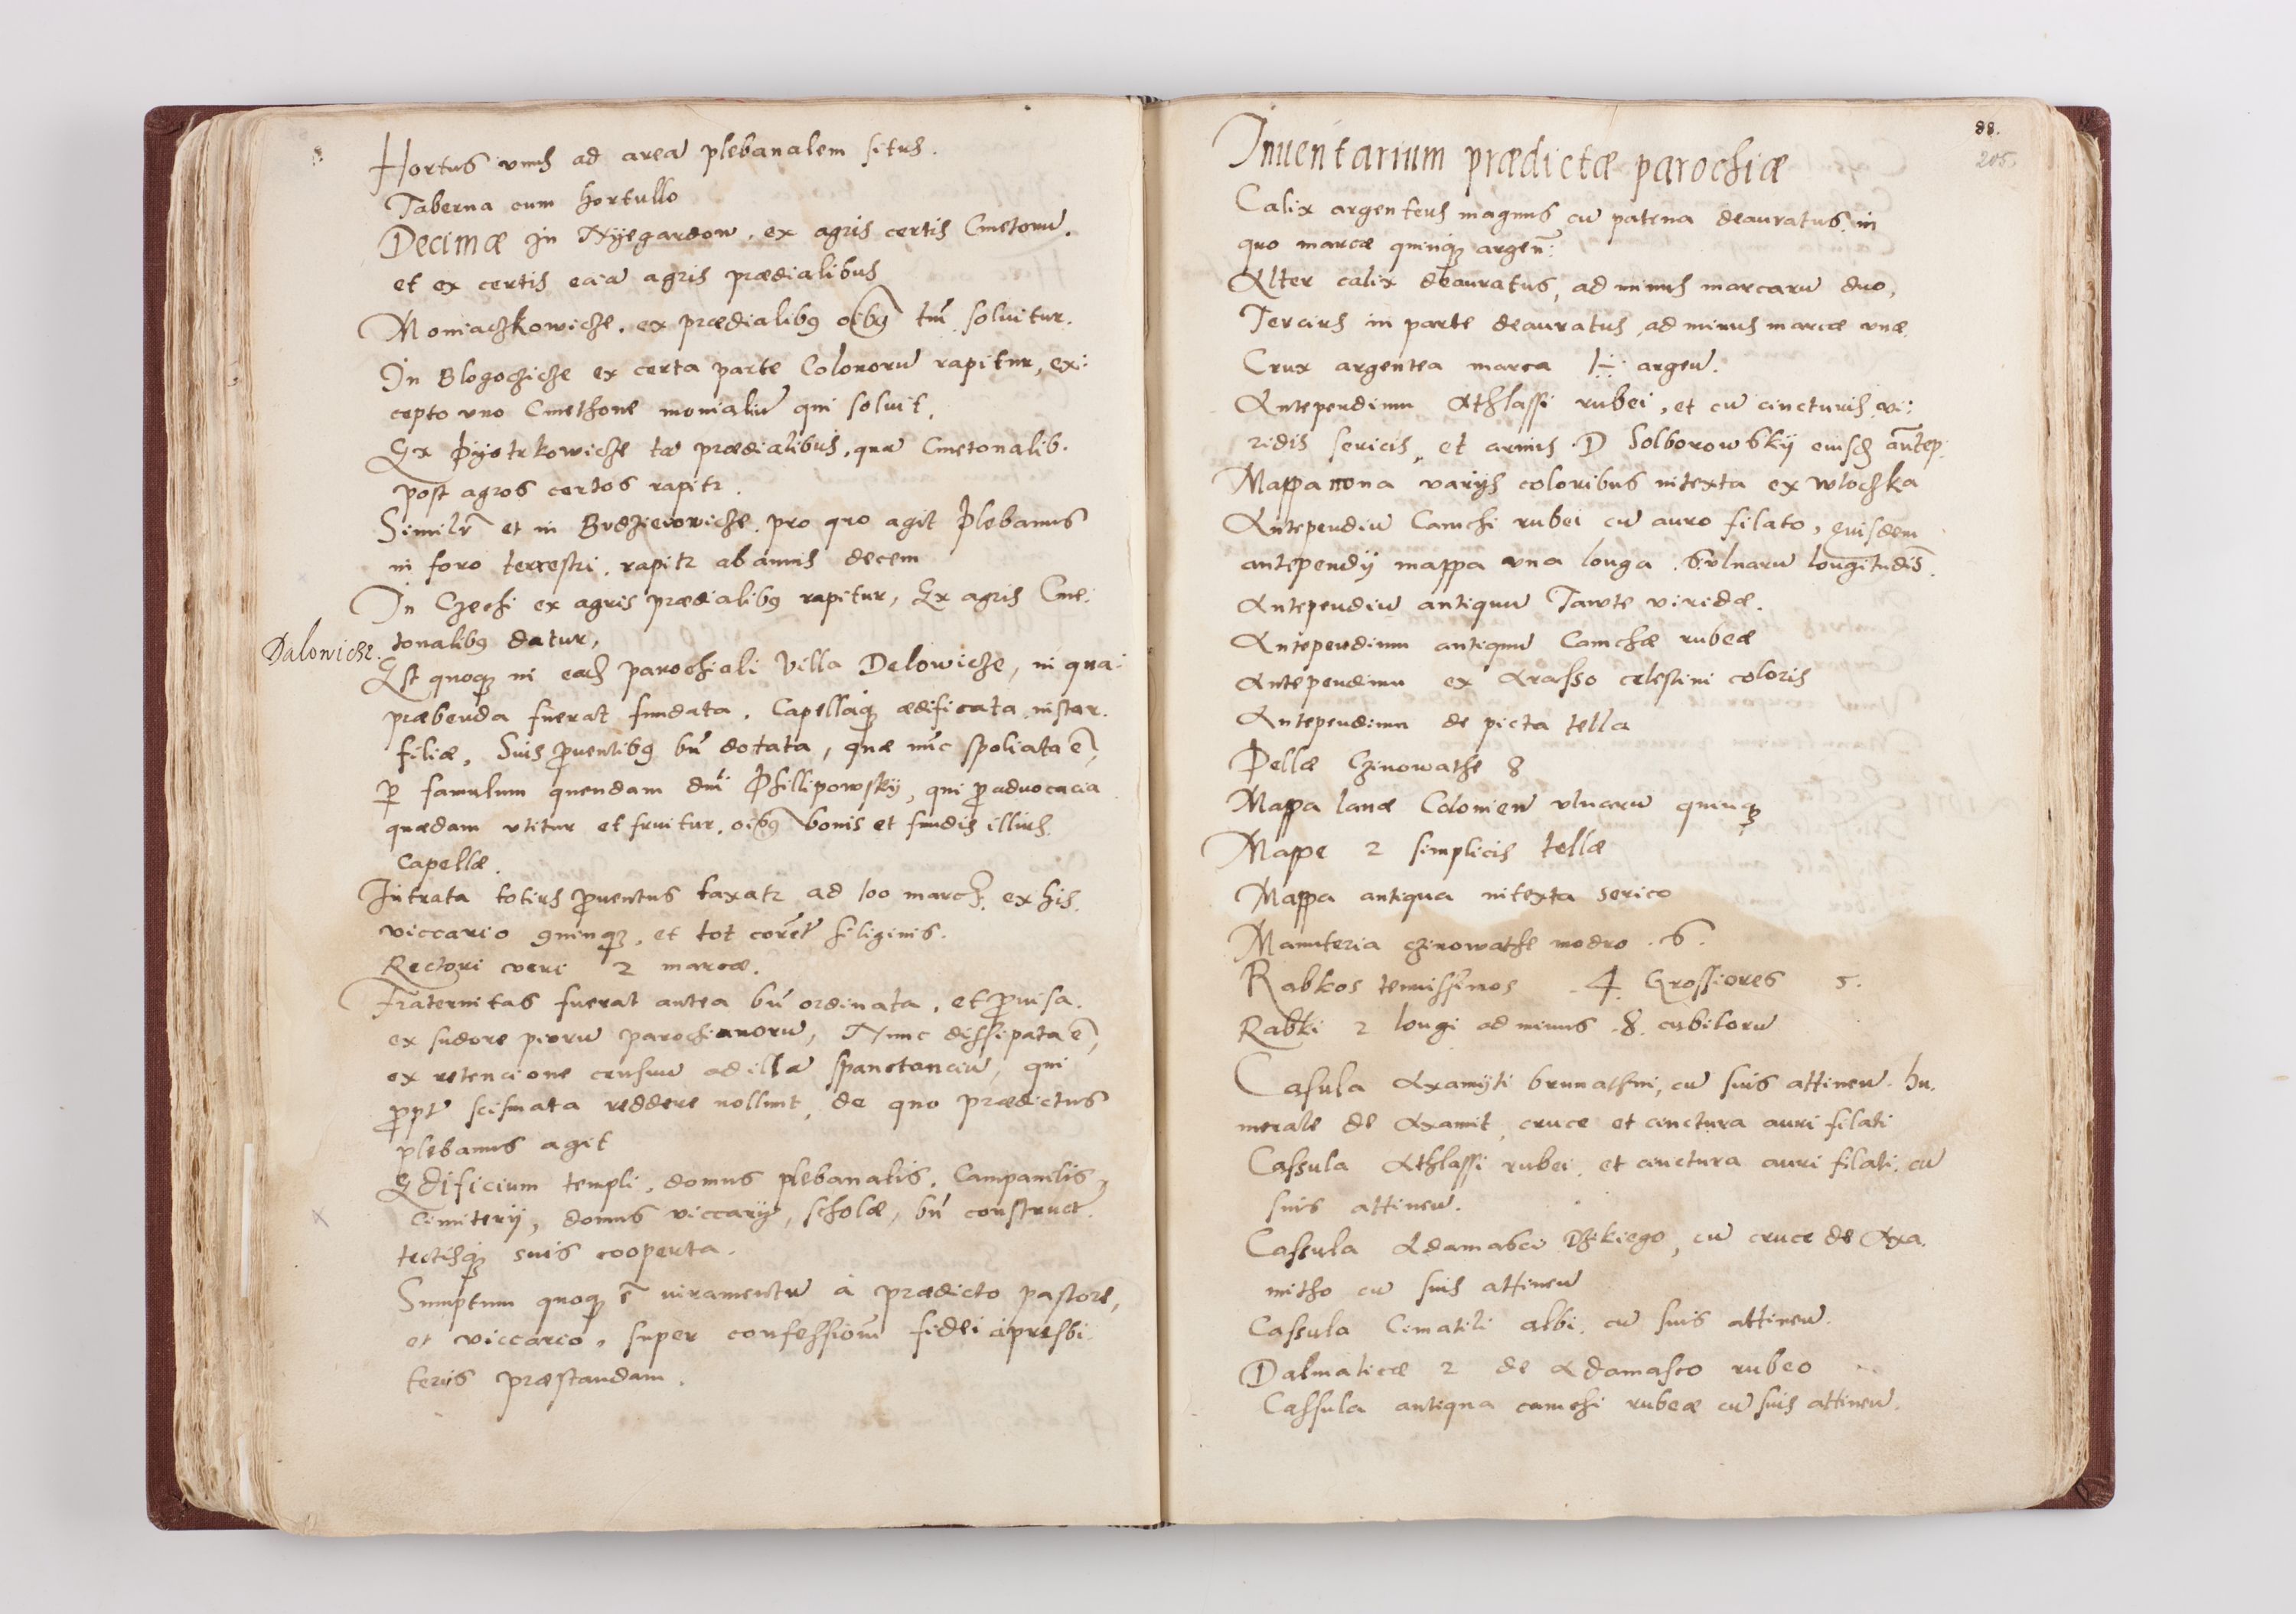 Hortus vnus ad areā plebanalem situs.
Taberna cum hortullo
Decimæ in Nyegardow, ex agris certis Cmetonū.
et ex certis eciā agris prædialibus
Moniachkowicze, ex prædialibꝯ oībꝯ tm̄ soluitur.
In Blogochicze ex certa parte Colonorū rapitur, ex:
cepto vno Cmethone monialiū qui soluit.
Ex Piyotrkowicze tā prædialibus, quā Cmetonalib.
post agros certos rapitꝛ.
Similr̄ et in Brdzieiowicze pro quo agit Plebanus
in foro terrestri, rapitꝛ ab annis decem
In Czechi ex agris prædialibꝯ rapitur, Ex agris Cme:
tonalibꝯ datur,
Dalowicze.
Est quoqꝫ in eadꝫ parochiali Villa Delowicze, in qua:
præbenda fuerat fundata, Capellaqꝫ ædificata instar.
filiæ, Suis ꝓuentibꝯ bn̄ dotata, quæ nūc spoliata ē,
ꝑ famulum quendam dnī Phillipowsky, qui ꝓ aduocacia
quædam vtitur et fruitur, oībꝯ bonis et fundis illius
Capellæ.
Intrata totius ꝓuentus taxatꝛ ad 100 marcꝫ. ex his.
viccario quinqꝫ, et tot corēt siliginis.
Rectori veri 2 marcæ.
Fraternitas fuerat antea bn̄ ordinata, et ꝓuisa.
ex sudore piorū parochianorū, Nunc dissipata ē,
ex retencione censuū ad illā spectanciū, qui
ꝓpt̄ scismata reddere nollunt, de quo prædictus
plebanus agit
Edificium templi, domus plebanalis, Campanilis,
Cimiterij, domus viccarij, scholæ, bn̄ construct.
tectisqꝫ suis cooperta.
Sumptum quoqꝫ ē iuramentū à prædicto pastore,
et viccario, super confessionē fidei à presbi
teris præstandam.
88.
205
Inuentarium prædictæ parochiæ
Calix argenteus magnus cū patena deauratus. in
quo marcæ quinqꝫ argen̄:
Alter calix deauratus, ad minus marcarū duo,
Tercius in parte deauratus, ad minus marcæ vnæ.
Crux argentea marca argen̄.
Antependium Athlassi rubei, et cū cincturis vi:
ridis sericis, et armis D Solborowsky eiusdꝫ antep.
Mappa vna varijs coloribus intexta ex wlochka
Antependiū Camchi rubei cū auro filato, Eiusdem
antependij mappa vna longa 6 vlnarū longitudīs.
Antependiū antiquū Tawte viridæ.
Antependium antiquū Camchæ rubeæ
Antependium ex Arasso celestini coloris
Antependium de picta tella
Pellæ Czinowathe 8
Mappa lanæ Colonien̄ vlnarū quinqꝫ
Mappe 2 simplicis tellæ
Mappa antiqua intexta serico
Manuteria czinowathe modro .6.
Rabkos tenuissimos .4. Grossiores 5.
Rabki 2 longi ad minus .8. cubitorū
Casula Axamyti brunathni, cū suis attinen̄. hu.
merale de Axamit, cruce et cinctura auri filati
Cassula Athlassi rubei, et cinctura auri filati. cū
suis attinen̄.
Cassula Adamasci , cū cruce de Axa.
mitho cū suis attinen̄
Cassula Cimatili albi, cū suis attinen̄.
Dalmaticæ 2 de Adamasco rubeo
Cassula antiqua camchi rubeæ cū suis attinen̄.